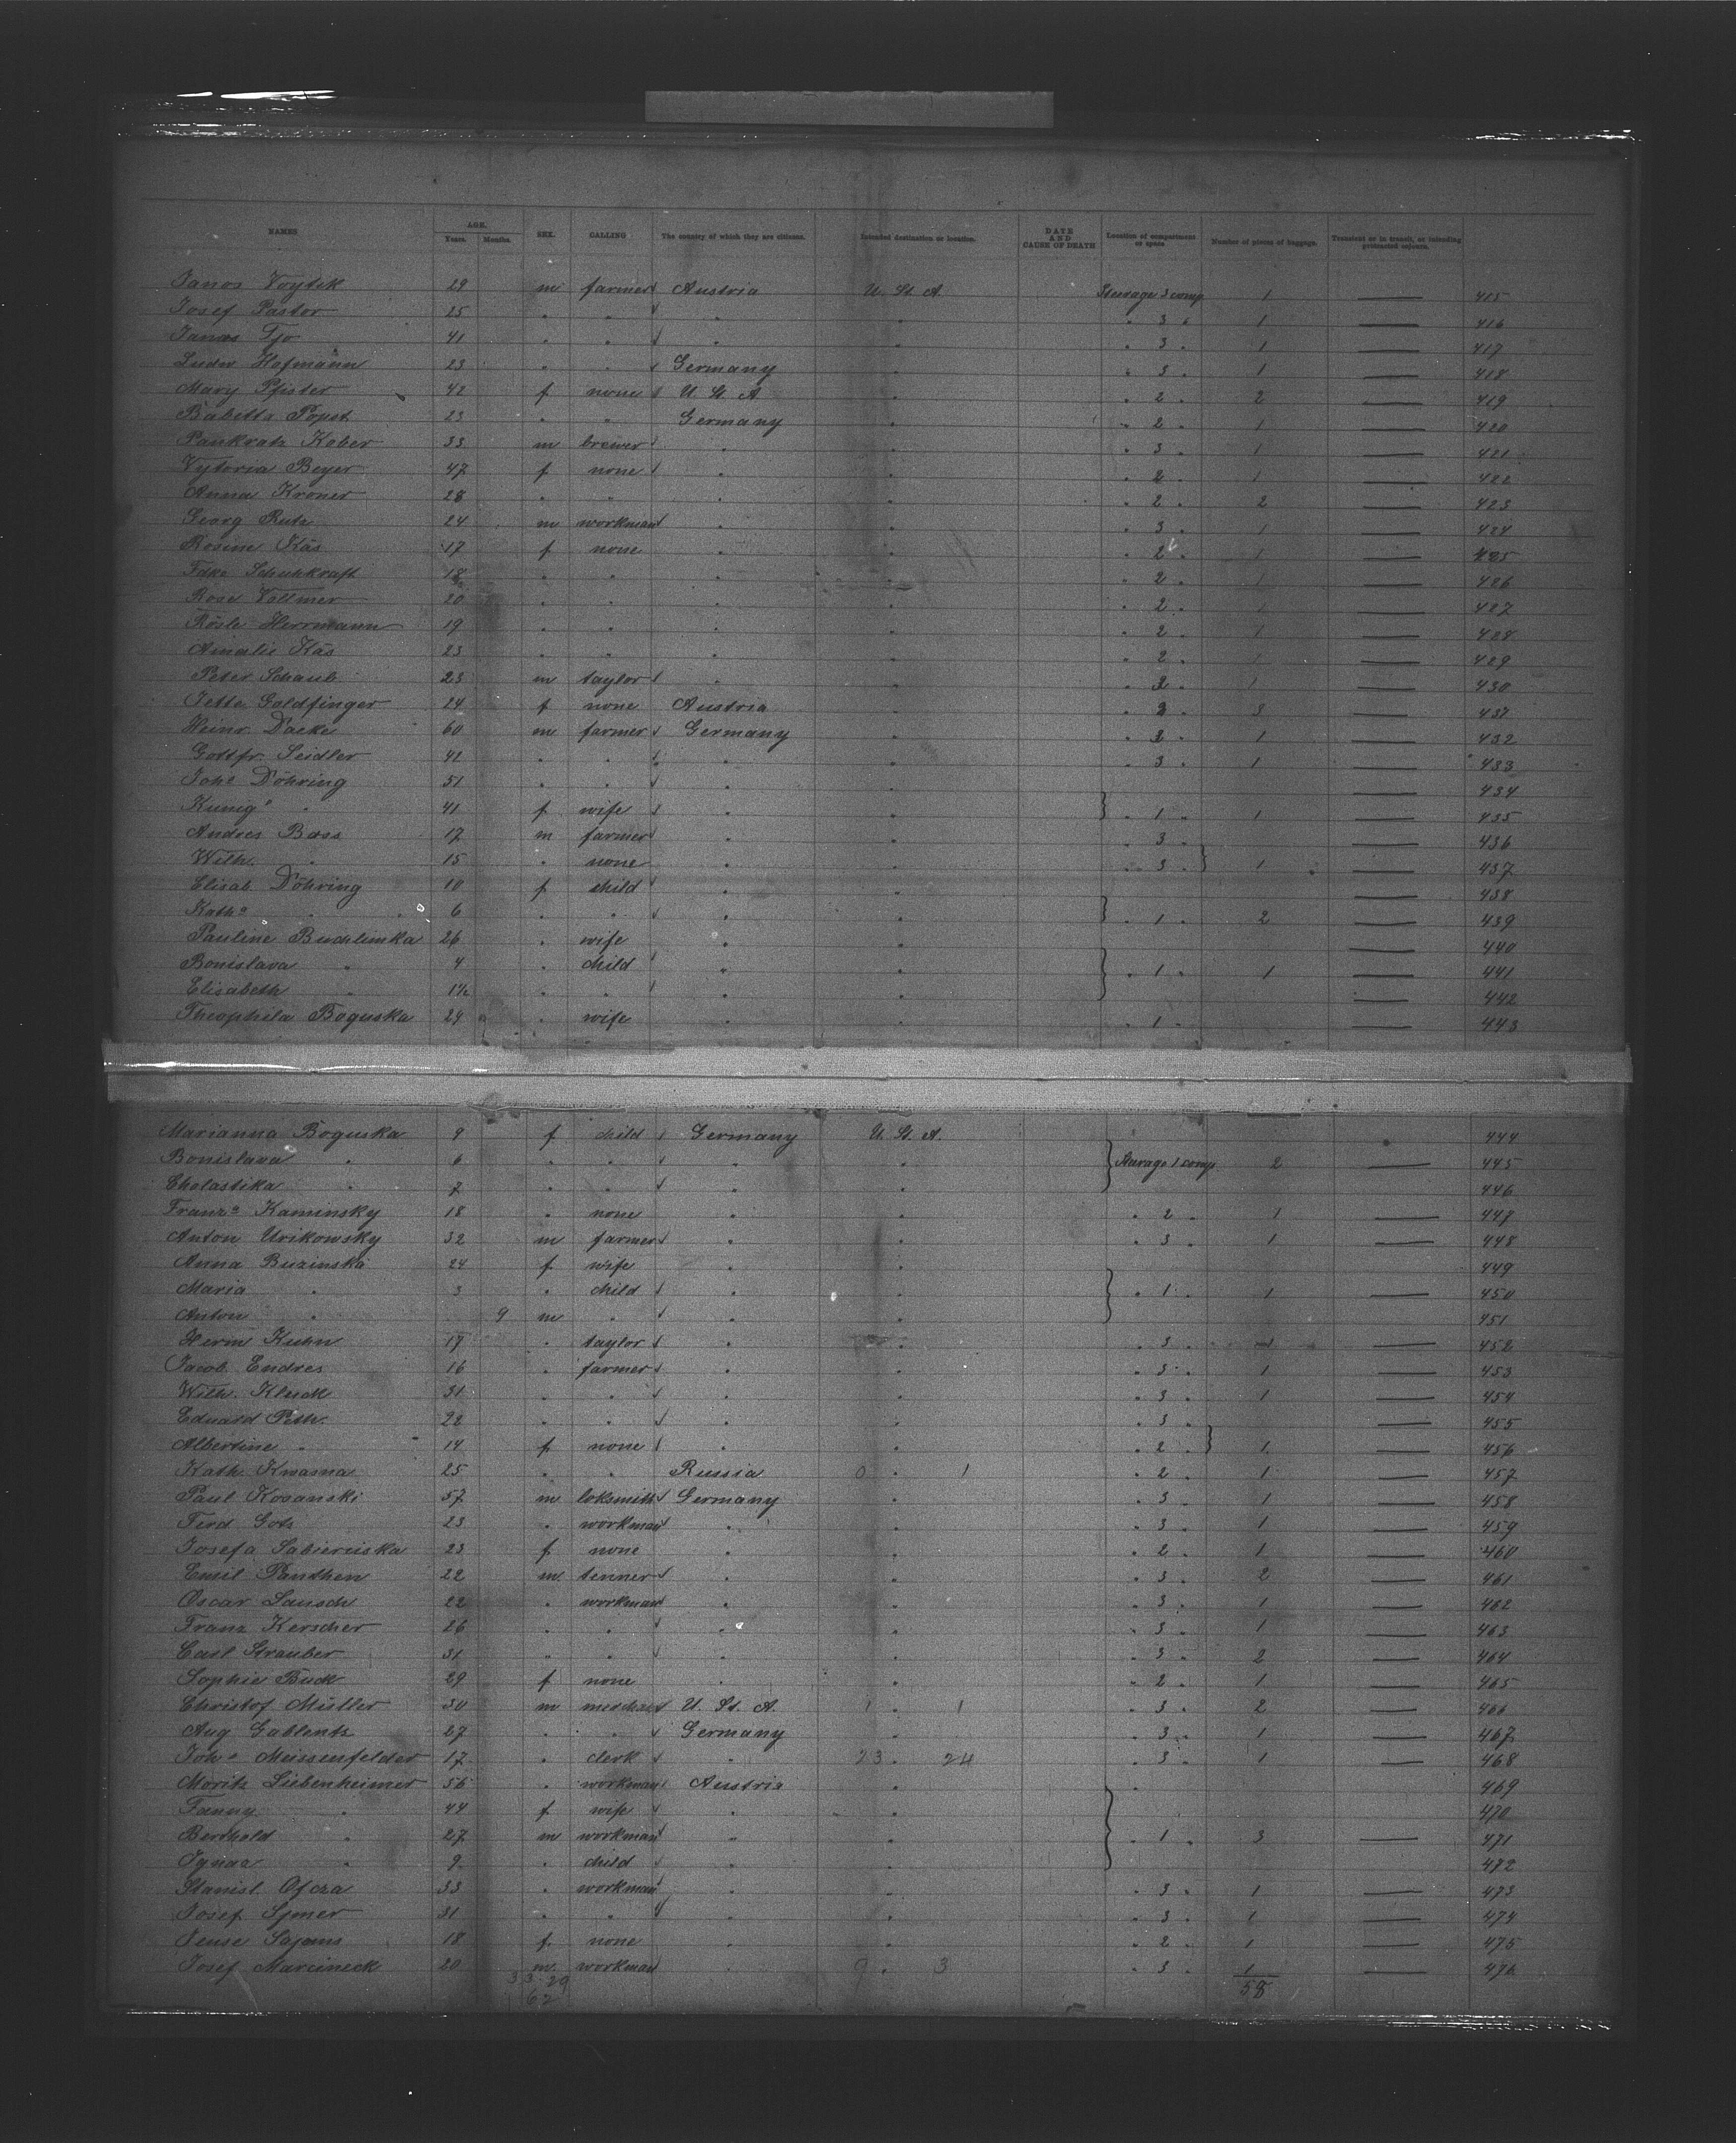 NAMES AGE. Years. Months. SEX. CALLING The country of which they are citizens. Intended destination or location. DATE AND CAUSE OF DEATH Location of compartment or space Number of pieces of baggage. Transient or in transit, or intending protracted sojourn.
Janos Voytek 29 m farmer Austria U. St. A. Steerage 3 comp 1 — 415
Josef Pastor 25 " " " " " 3 " 1 — 416
Janos Tjo 41 " " " " " 3 " 1 — 417
Ludw Hofmann 23 " " Germany " " 3 " 1 — 418
Mary Pfister 42 f none U. St. A " " 2 " 2 — 419
Babetta Popst 23 " " Germany " " 2 " 1 — 420
Pankratz Kober 33 m brewer " " " 3 " 1 — 421
Vytoria Beyer 47 f none " " " 2 " 1 — 422
Anna Kroner 28 " " " " " 2 " 2 — 423
Georg Rutz 24 m workman " " " 3 " 1 — 424
Rosine Käs 17 f none " " " 2 " 1 — 425
Fdke Schuhkraft 18 " " " " " 2 " 1 — 426
Rosa Vollmer 20 " " " " " 2 " 1 — 427
Rösle Herrmann 19 " " " " " 2 " 1 — 428
Amalie Käs 23 " " " " " 2 " 1 — 429
Peter Schaub 23 m taylor " " " 3 " 1 — 430
Jette Goldfinger 24 f none Austria " " 2 " 3 — 431
Heinr. Dacke 60 m farmer Germany " " 2 " 1 — 432
Gottfr. Seidler 41 " " " " " 3 " 1 — 433
Joh. Döhring 51 " " " " — 434
Kunig. " 41 f wife " " " 1 " 1 — 435
Andres Bass 17 m farmer " " " 3 " — 436
Wilh. " 15 " none " " " 3 " 1 — 437
Elisab. Döhring 10 f child " " — 438
Kath. " 6 " " " " " 1 " 2 — 439
Pauline Buchlimka 26 " wife " " — 440
Bonislava " 4 " child " " " 1 " 1 — 441
Elisabeth " 1½ " " " " — 442
Theophela Boguska 29 " wife " " " 1 " — 443
Marianna Boguska 9 f child Germany U. St. A. 444
Bonislava " 6 " " " " Steerage 1 comp 2 — 445
Cholastika " 7 " " " " 446
Franz. Kaminsky 18 " none " " " 2 " 1 — 447
Anton Urikowsky 32 m farmer " " " 3 " 1 — 448
Anna Buzinska 24 f wife " " 449
Maria " 3 " child " " " 1 " 1 — 450
Anton " 9 m " " " 451
Herm Kuhn 17 " taylor " " " 3 " 1 — 452
Jacob Endres 16 " farmer " " " 3 " 1 — 453
Wilh. Kluck 31 " " " " " 3 " 1 — 454
Eduard Peth. 22 " " " " " 3 " — 455
Albertine " 14 f none " " " 2 " 1 — 456
Kath Kwasna 25 " " Russia 0 " 1 " 2 " 1 — 457
Paul Kosanski 57 m loksmith Germany " " 3 " 1 — 458
Ferd Gotz 23 " workman " " " 3 " 1 — 459
Josefa Sabierciska 23 f none " " " 2 " 1 — 460
Emil Panthen 22 m tinner " " " 3 " 2 — 461
Oscar Lausch 22 " workman " " " 3 " 1 — 462
Franz Kerscher 26 " " " " " 3 " 1 — 463
Carl Strauber 31 " " " " " 3 " 2 — 464
Sophie Buck 29 f none " " " 2 " 1 — 465
Christof Müller 30 m U. St. A. 1 " 1 " 3 " 2 — 466
Aug Gablentz 27 " " Germany " " 3 " 1 — 467
Joh. Meissenfelder 17 " clerk " 23 " 24 " 3 " 1 — 468
Moritz Liebenheimer 56 " workman Austria " 469
Fanny " 44 f wife " " 470
Berthold " 27 m workman " " " 1 " 3 — 471
Ignaz " 9 " child " " 472
Stanisl. Ofcza 33 " workman " " " 3 " 1 — 473
Josef Symer 31 " " " " " 3 " 1 — 474
Sajans 18 f none " " " 2 " 1 — 475
Josef Marcineck 20 m workman " 9 " 3 " 3 " 1 — 476
33 29 58
62